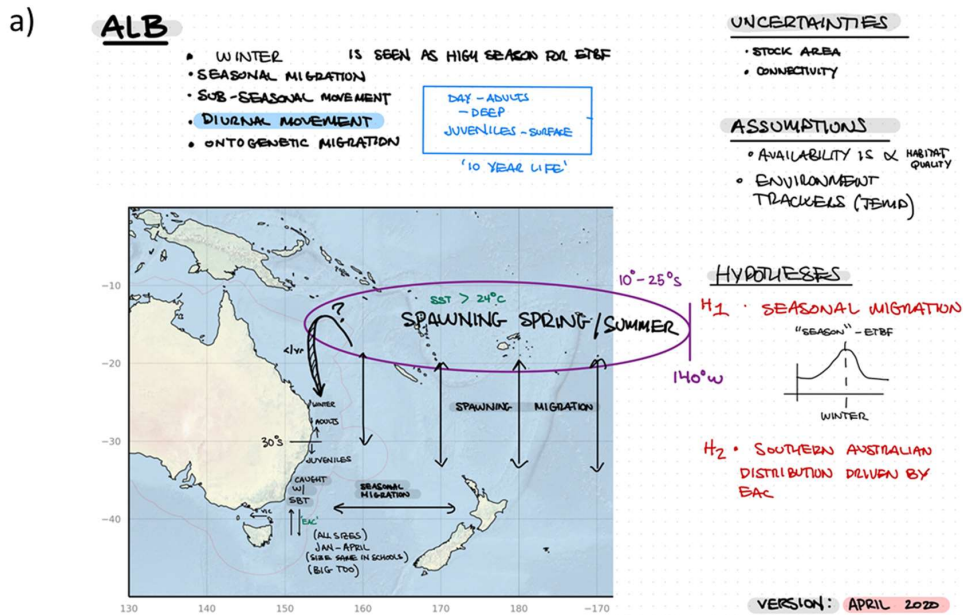 a)
ALB
• WINTER IS SEEN AS HIGH SEASON FOR ETBF
• SEASONAL MIGRATION
• SUB-SEASONAL MOVEMENT
• DIURNAL MOVEMENT
• ONTOGENETIC MIGRATION
DAY - ADULTS
- DEEP
JUVENILES - SURFACE
'10 YEAR LIFE'
UNCERTAINTIES
• STOCK AREA
• CONNECTIVITY
ASSUMPTIONS
• AVAILABILITY IS ∝ HABITAT QUALITY
• ENVIRONMENT
TRACKERS (TEMP)
HYPOTHESES
H1 • SEASONAL MIGRATION
"SEASON" - ETBF
WINTER
H2 • SOUTHERN AUSTRALIAN
DISTRIBUTION DRIVEN BY
EAC
VERSION: APRIL 2020
10°-25°S
SST > 24°C
SPAWNING SPRING/SUMMER
140°W
?
WINTER
ADULTS
30°S
JUVENILES
SPAWNING MIGRATION
CAUGHT
W/
SBT
SEASONAL
MIGRATION
VIC
'EAC'
(ALL SIZES)
JAN - APRIL
(SIZE SAME IN SCHOOLS)
(BIG TOO)
−10
−20
−30
−40
130 140 150 160 170 180 −170